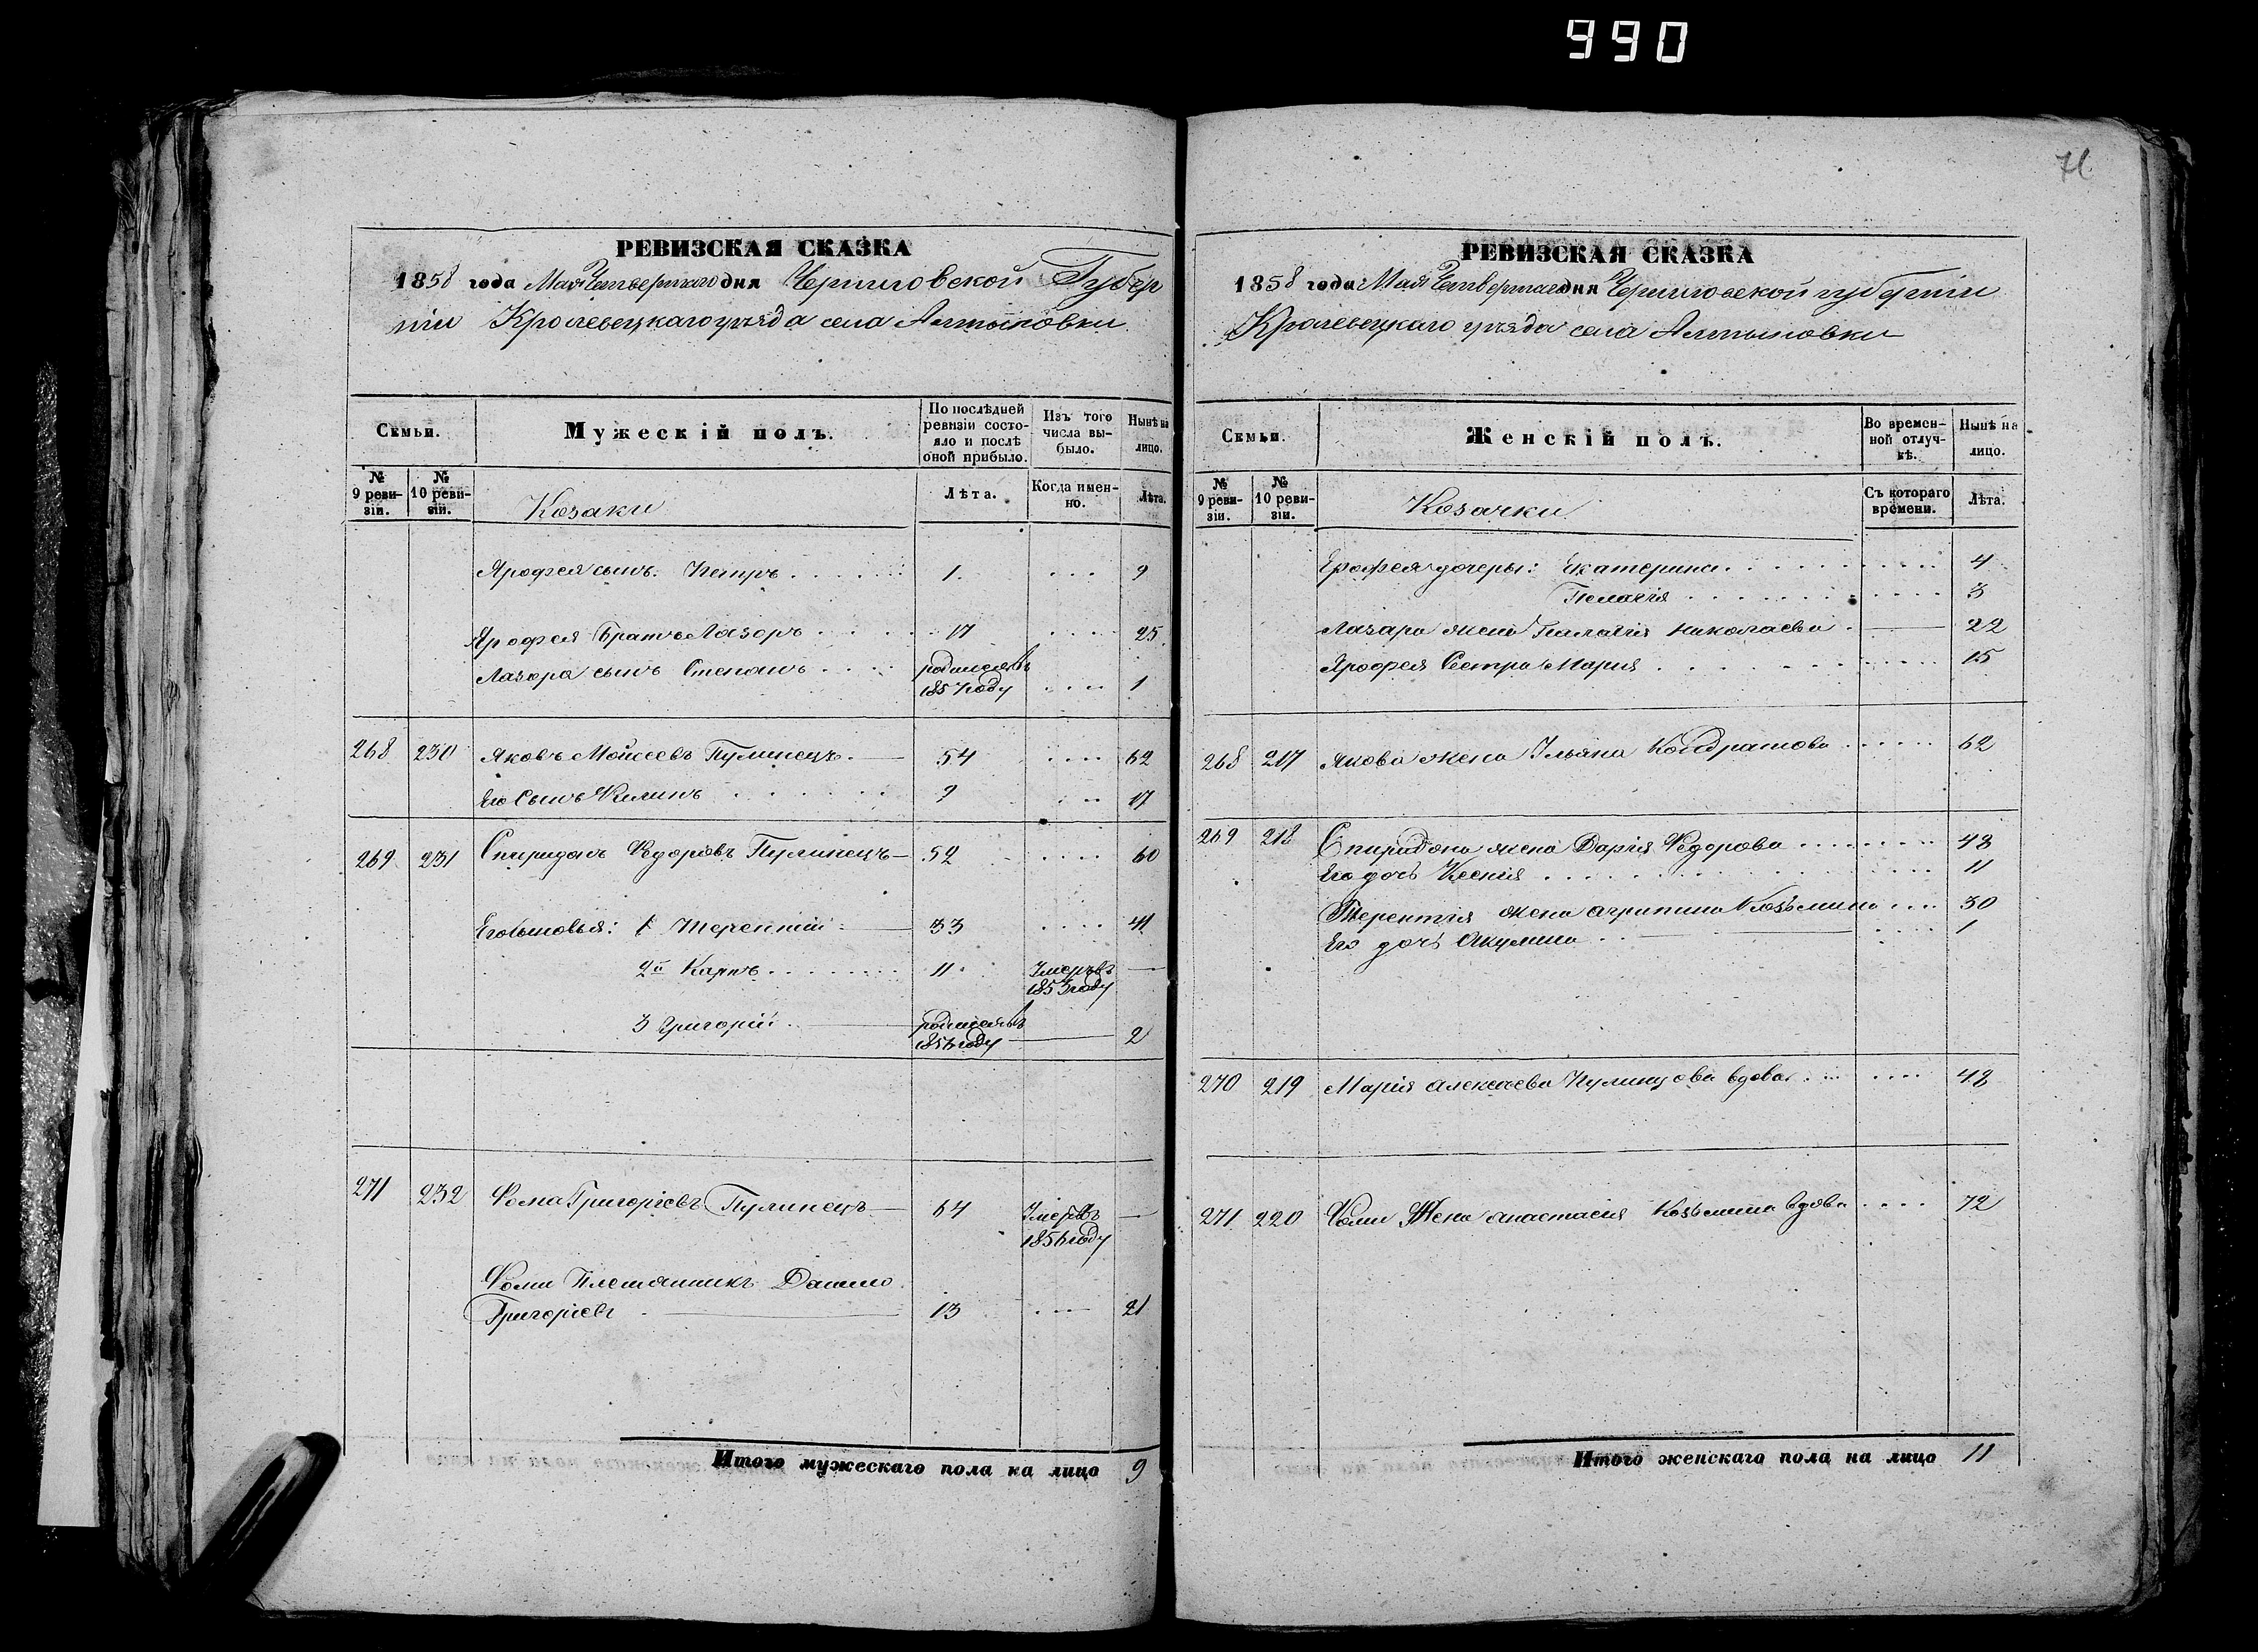 990
71
РЕВИЗСКАЯ СКАЗКА
1858 года Мая Четвертаго дня Черниговской Губер
ніи Кролевецкаго уѣзда села Алтыновки
Семьи. Мужескій полъ. По послѣдней ревизіи состояло и послѣ оной прибыло. Изъ того числа выбыло. Нынѣ на лицо.
№ 9 ревизіи. № 10 ревизіи. Козаки Лѣта. Когда именно. Лѣта.
Ярофея сынъ: Петръ 1 9
Ярофея Братъ Лазоръ 17 25
Лазора сынъ Степанъ родился въ 1857 году 1
268 230 Яковъ Мойсеевъ Пулинецъ 54 62
Его Сынъ Филипъ 9 17
269 231 Спиридонъ Федоровъ Пулинецъ 52 60
Его Сыновья: 1 Терентій 33 41
2й Карпъ 11 Умеръ въ 1853 году
3 Григорій родился въ 1856 году 2
271 232 Фома Григоріевъ Пулинецъ 64 Умеръ въ 1856 году
Фомы Племянникъ Данило
Григоріевъ 13 21
Итого мужескаго пола на лицо 9
РЕВИЗСКАЯ СКАЗКА
1858 года Мая Четвертаго дня Черниговской губерніи
Кролевецкаго уѣзда села Алтыновки
Семьи. Женскій полъ. Во временной отлучкѣ. Нынѣ на лицо.
№ 9 ревизіи. № 10 ревизіи. Козачки Съ котораго времени. Лѣта.
Ерофея дочеры: Екатерина 4
Пелагія 3
Лазара жена Пелагія Николаева 22
Ярофея Сестра Марія 15
268 217 Якова жена Ульяна Кондратова 62
269 218 Спиридона жена Дарія Федорова 48
Его дочь Ксенія 11
Терентія жена Агрипина Козьмина 30
Его дочь Акулина 1
270 219 Марія Алексѣева Пулинцова вдова 48
271 220 Фомы Жена Анастасія Козьмина вдова 72
Итого женскаго пола на лицо 11